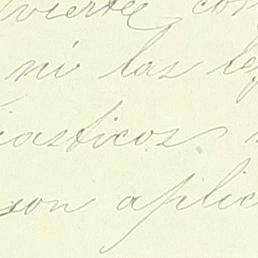 vierte con
ni las le
iasticos
son aplic